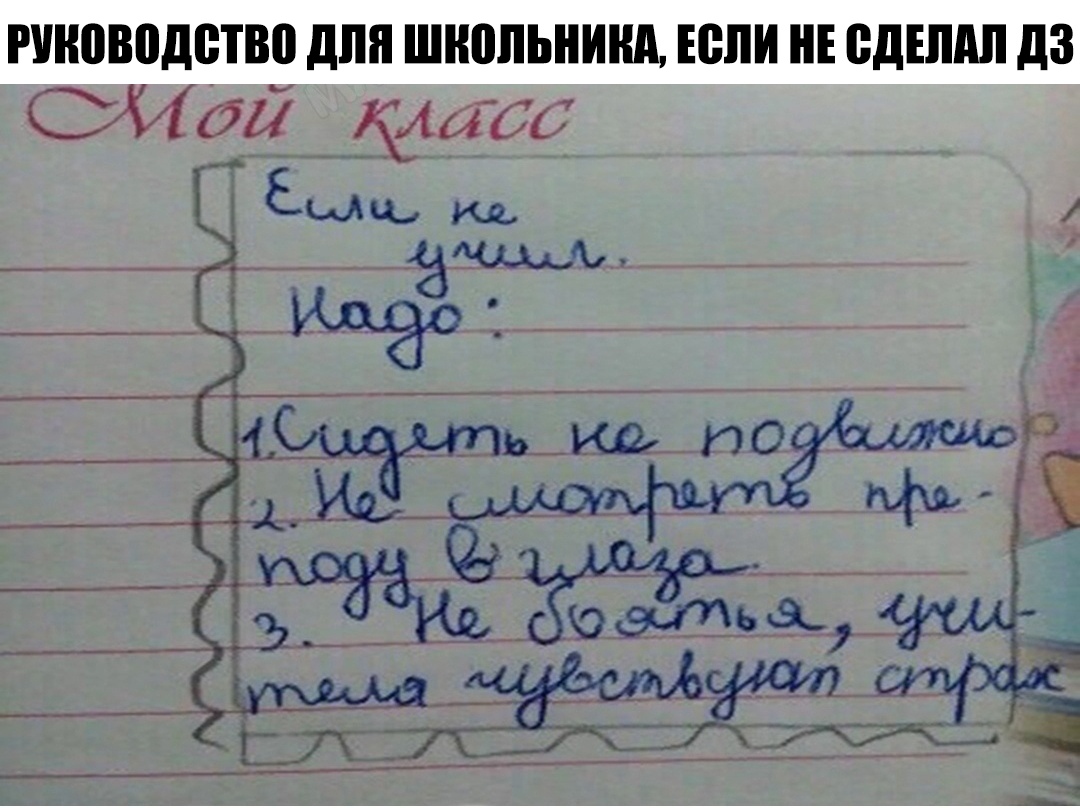 РУКОВОДСТВО ДЛЯ ШКОЛЬНИКА, ЕСЛИ НЕ СДЕЛАЛ ДЗ
Мой класс
Если не
учил.
Надо:
1. Сидеть не подвижно
2. Не смотреть пре-
поду в глаза.
3. Не боятья, учи-
теля чувствуют страх